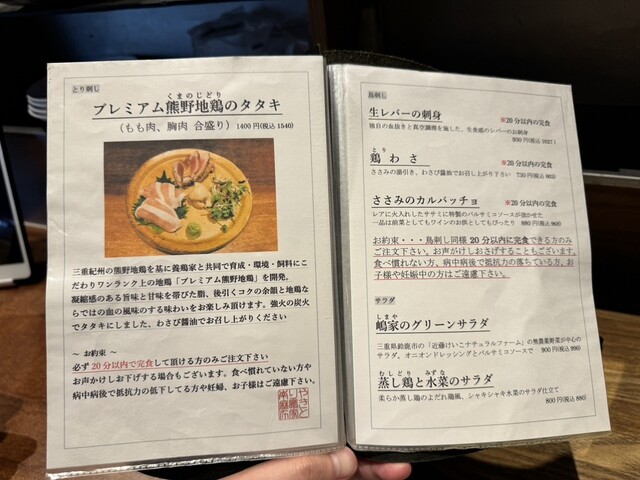 とり刺し
くまのじどり
プレミアム熊野地鶏のタタキ
(もも肉、胸肉 合盛り) 1400円(税込1540)
三重紀州の熊野地鶏を基に養鶏家と共同で育成・環境・飼料にこ
だわりワンランク上の地鶏「プレミアム熊野地鶏」を開発。
凝縮感のある旨味と甘味を帯びた脂、後引くコクの余韻と地鶏な
らではの血の風味のする味わいをお楽しみ頂けます。強火の炭火
でタタキにしました、わさび醤油でお召し上がりください
～ お約束 ～
必ず20分以内で完食して頂ける方のみご注文下さい
お声かけしお下げする場合もございます。食べ慣れていない方や
病中病後で抵抗力の低下してる方や妊婦、お子様はご遠慮下さい。
鳥刺し
生レバーの刺身 ※20分以内の完食
独自の血抜きと真空調理を施した、生食感のレバーのお刺身
930円(税込1027)
とり
鶏わさ ※20分以内の完食
ささみの湯引き、わさび醤油でお召し上がり下さい 730円(税込803)
ささみのカルパッチョ ※20分以内の完食
レアに火入れしたササミに特製のバルサミコソースが効かせた
一品は前菜としてもワインのお供としてもぴったり 880円(税込968)
お約束・・・鳥刺し同様20分以内に完食できる方のみ
ご注文下さい。お声がけしおさげすることもございます。
食べ慣れない方、病中病後で抵抗力の落ちている方、お
子様や妊娠中の方はご遠慮下さい。
サラダ
しまや
嶋家のグリーンサラダ
三重県鈴鹿市の「近藤けいこナチュラルファーム」の無農薬野菜が中心の
サラダ。オニオンドレッシングとバルサミコソースで 900円(税込990)
むしどり みずな
蒸し鶏と水菜のサラダ
柔らか蒸し鶏のよだれ鶏風、シャキシャキ水菜のサラダ仕立て
800円(税込880)